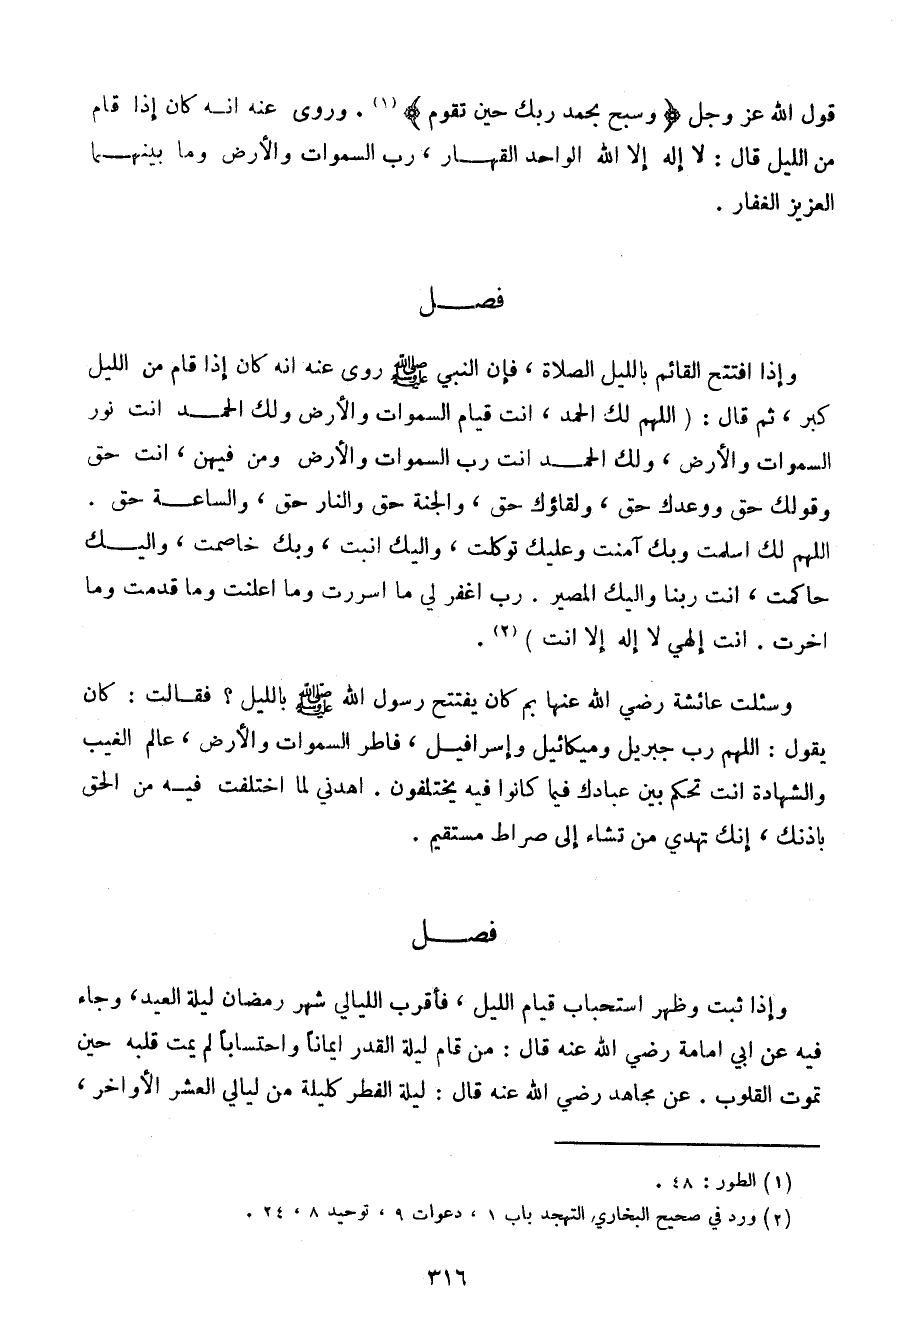 قول الله عز وجل ﴿ وسبح بحمد ربك حين تقوم ﴾ (١) . وروى عنه انه كان إذا قام
من الليل قال : لا إله إلا الله الواحد القهار ، رب السموات والأرض وما بينهما
العزيز الغفار .
فصل
وإذا افتتح القائم بالليل الصلاة ، فإن النبي ﷺ روى عنه انه كان إذا قام من الليل
كبر ، ثم قال : ( اللهم لك الحمد ، انت قيام السموات والأرض ولك الحمد انت نور
السموات والأرض ، ولك الحمد انت رب السموات والأرض ومن فيهن ، انت حق
وقولك حق ووعدك حق ، ولقاؤك حق ، والجنة حق والنار حق ، والساعة حق .
اللهم لك اسلمت وبك آمنت وعليك توكلت ، واليك انبت ، وبك خاصمت ، واليك
حاكمت ، انت ربنا واليك المصير . رب اغفر لي ما اسررت وما اعلنت وما قدمت وما
اخرت . انت إلهي لا إله إلا انت ) (٢) .
وسئلت عائشة رضي الله عنها بم كان يفتتح رسول الله ﷺ بالليل ؟ فقالت : كان
يقول : اللهم رب جبريل وميكائيل وإسرافيل ، فاطر السموات والأرض ، عالم الغيب
والشهادة انت تحكم بين عبادك فيما كانوا فيه يختلفون . اهدني لما اختلفت فيه من الحق
باذنك ، إنك تهدي من تشاء إلى صراط مستقيم .
فصل
وإذا ثبت وظهر استحباب قيام الليل ، فأقرب الليالي شهر رمضان ليلة العيد، وجاء
فيه عن ابي امامة رضي الله عنه قال : من قام ليلة القدر ايماناً واحتساباً لم يمت قلبه حين
تموت القلوب . عن مجاهد رضي الله عنه قال : ليلة الفطر كليلة من ليالي العشر الأواخر ،
(١) الطور : ٤٨ .
(٢) ورد في صحيح البخاري, التهجد باب ١ ، دعوات ٩ ، توحيد ٨ ، ٢٤ .
٣١٦